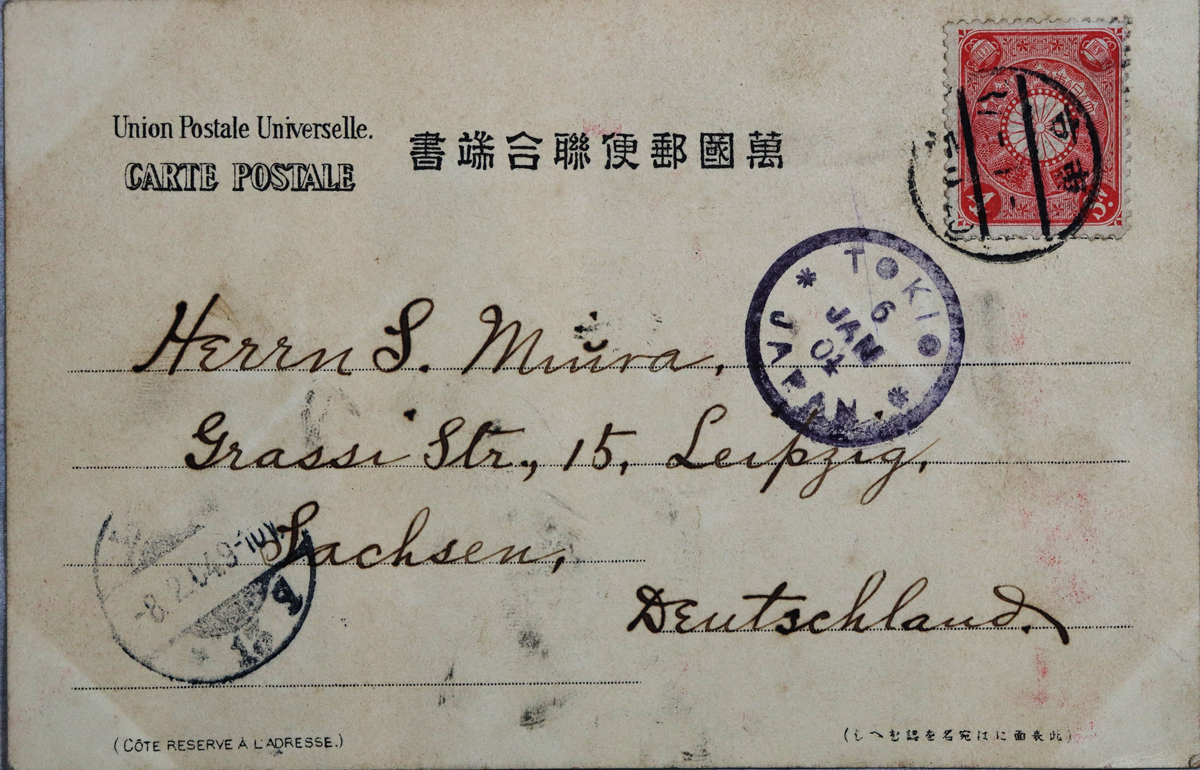 Union Postale Universelle.
CARTE POSTALE
書端合聯便郵國萬
TOKIO
6
JAN
04
JAPAN
Herrn S. Miūra,
Grassi Str., 15, Leipzig,
Sachsen,
Deutschland.
-8.2.04.9-10V.
(CÔTE RESERVE À L'ADRESSE.)
(しへむ認を名宛はに面表此)